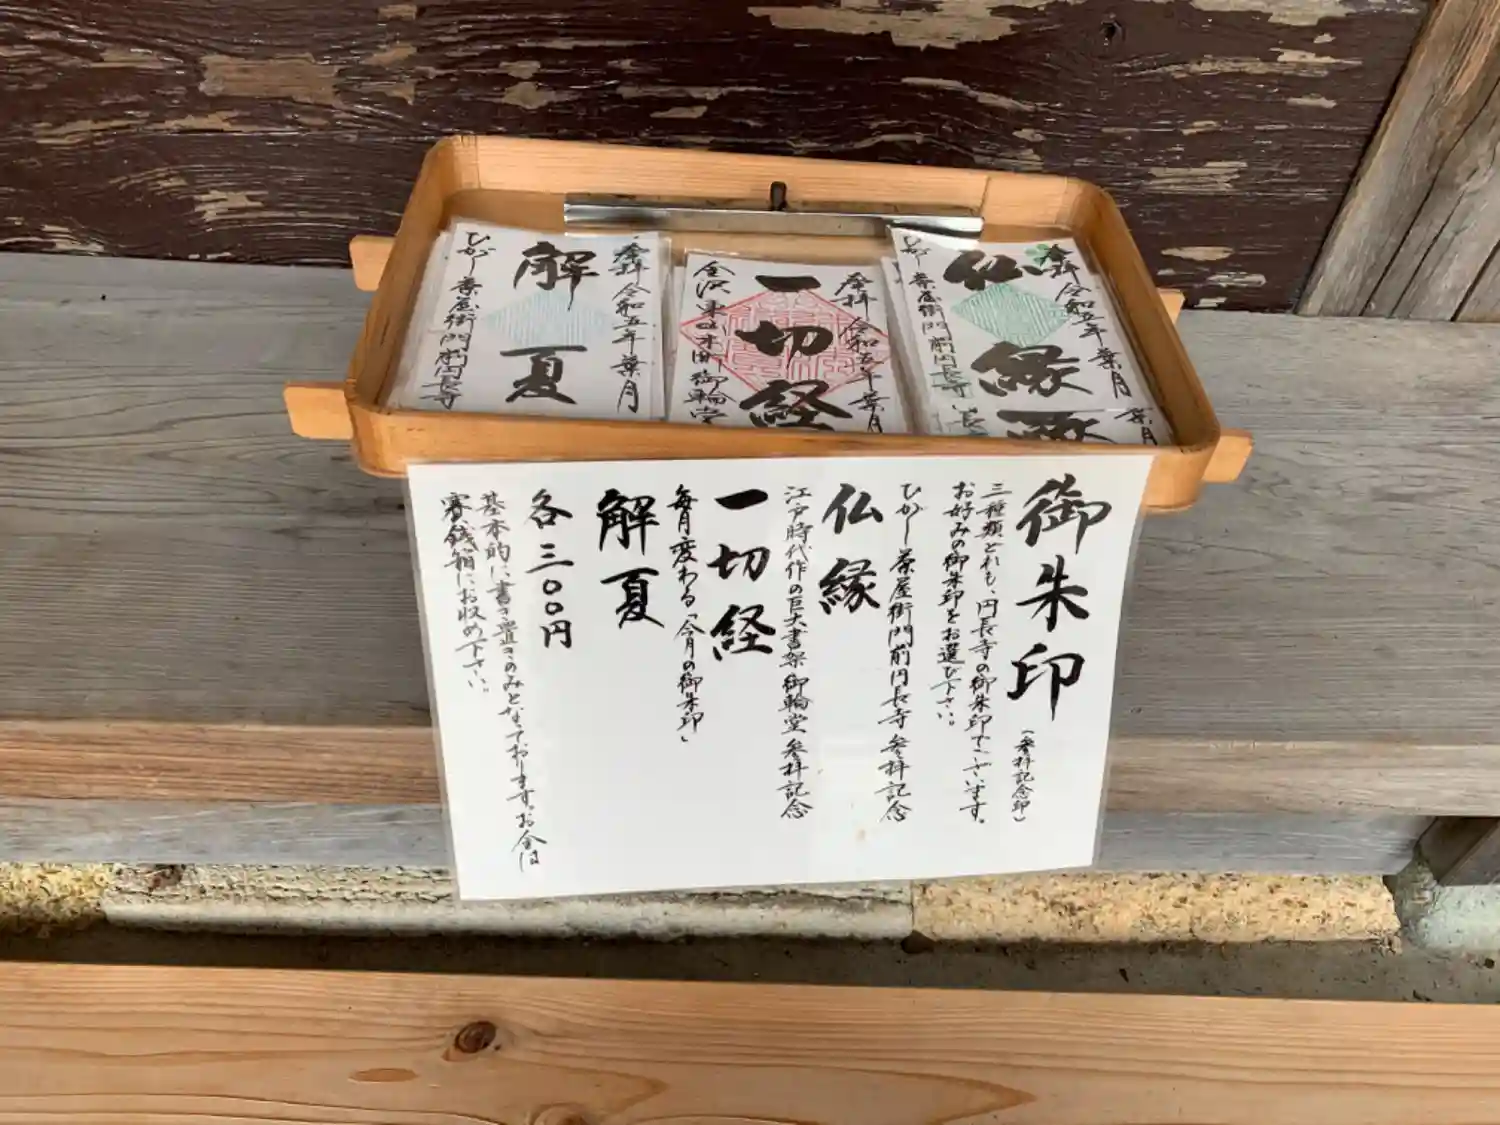 解夏
参拝 令和五年 葉月
ひがし茶屋街門前 円長寺
一切経
参拝 令和五年 葉月
金沢 東山木町 御輪堂
仏縁
参拝 令和五年 葉月
ひがし茶屋街門前 円長寺
葉月
御朱印
(参拝記念印)
三種類どれも、円長寺の御朱印でございます。
お好みの御朱印をお選び下さい。
仏縁
ひがし茶屋街門前円長寺 参拝記念
一切経
江戸時代作の巨大書架 御輪堂 参拝記念
解夏
毎月変わる「今月の御朱印」
各三〇〇円
基本的に書き置きのみとなっております。お金は
賽銭箱にお収め下さい。